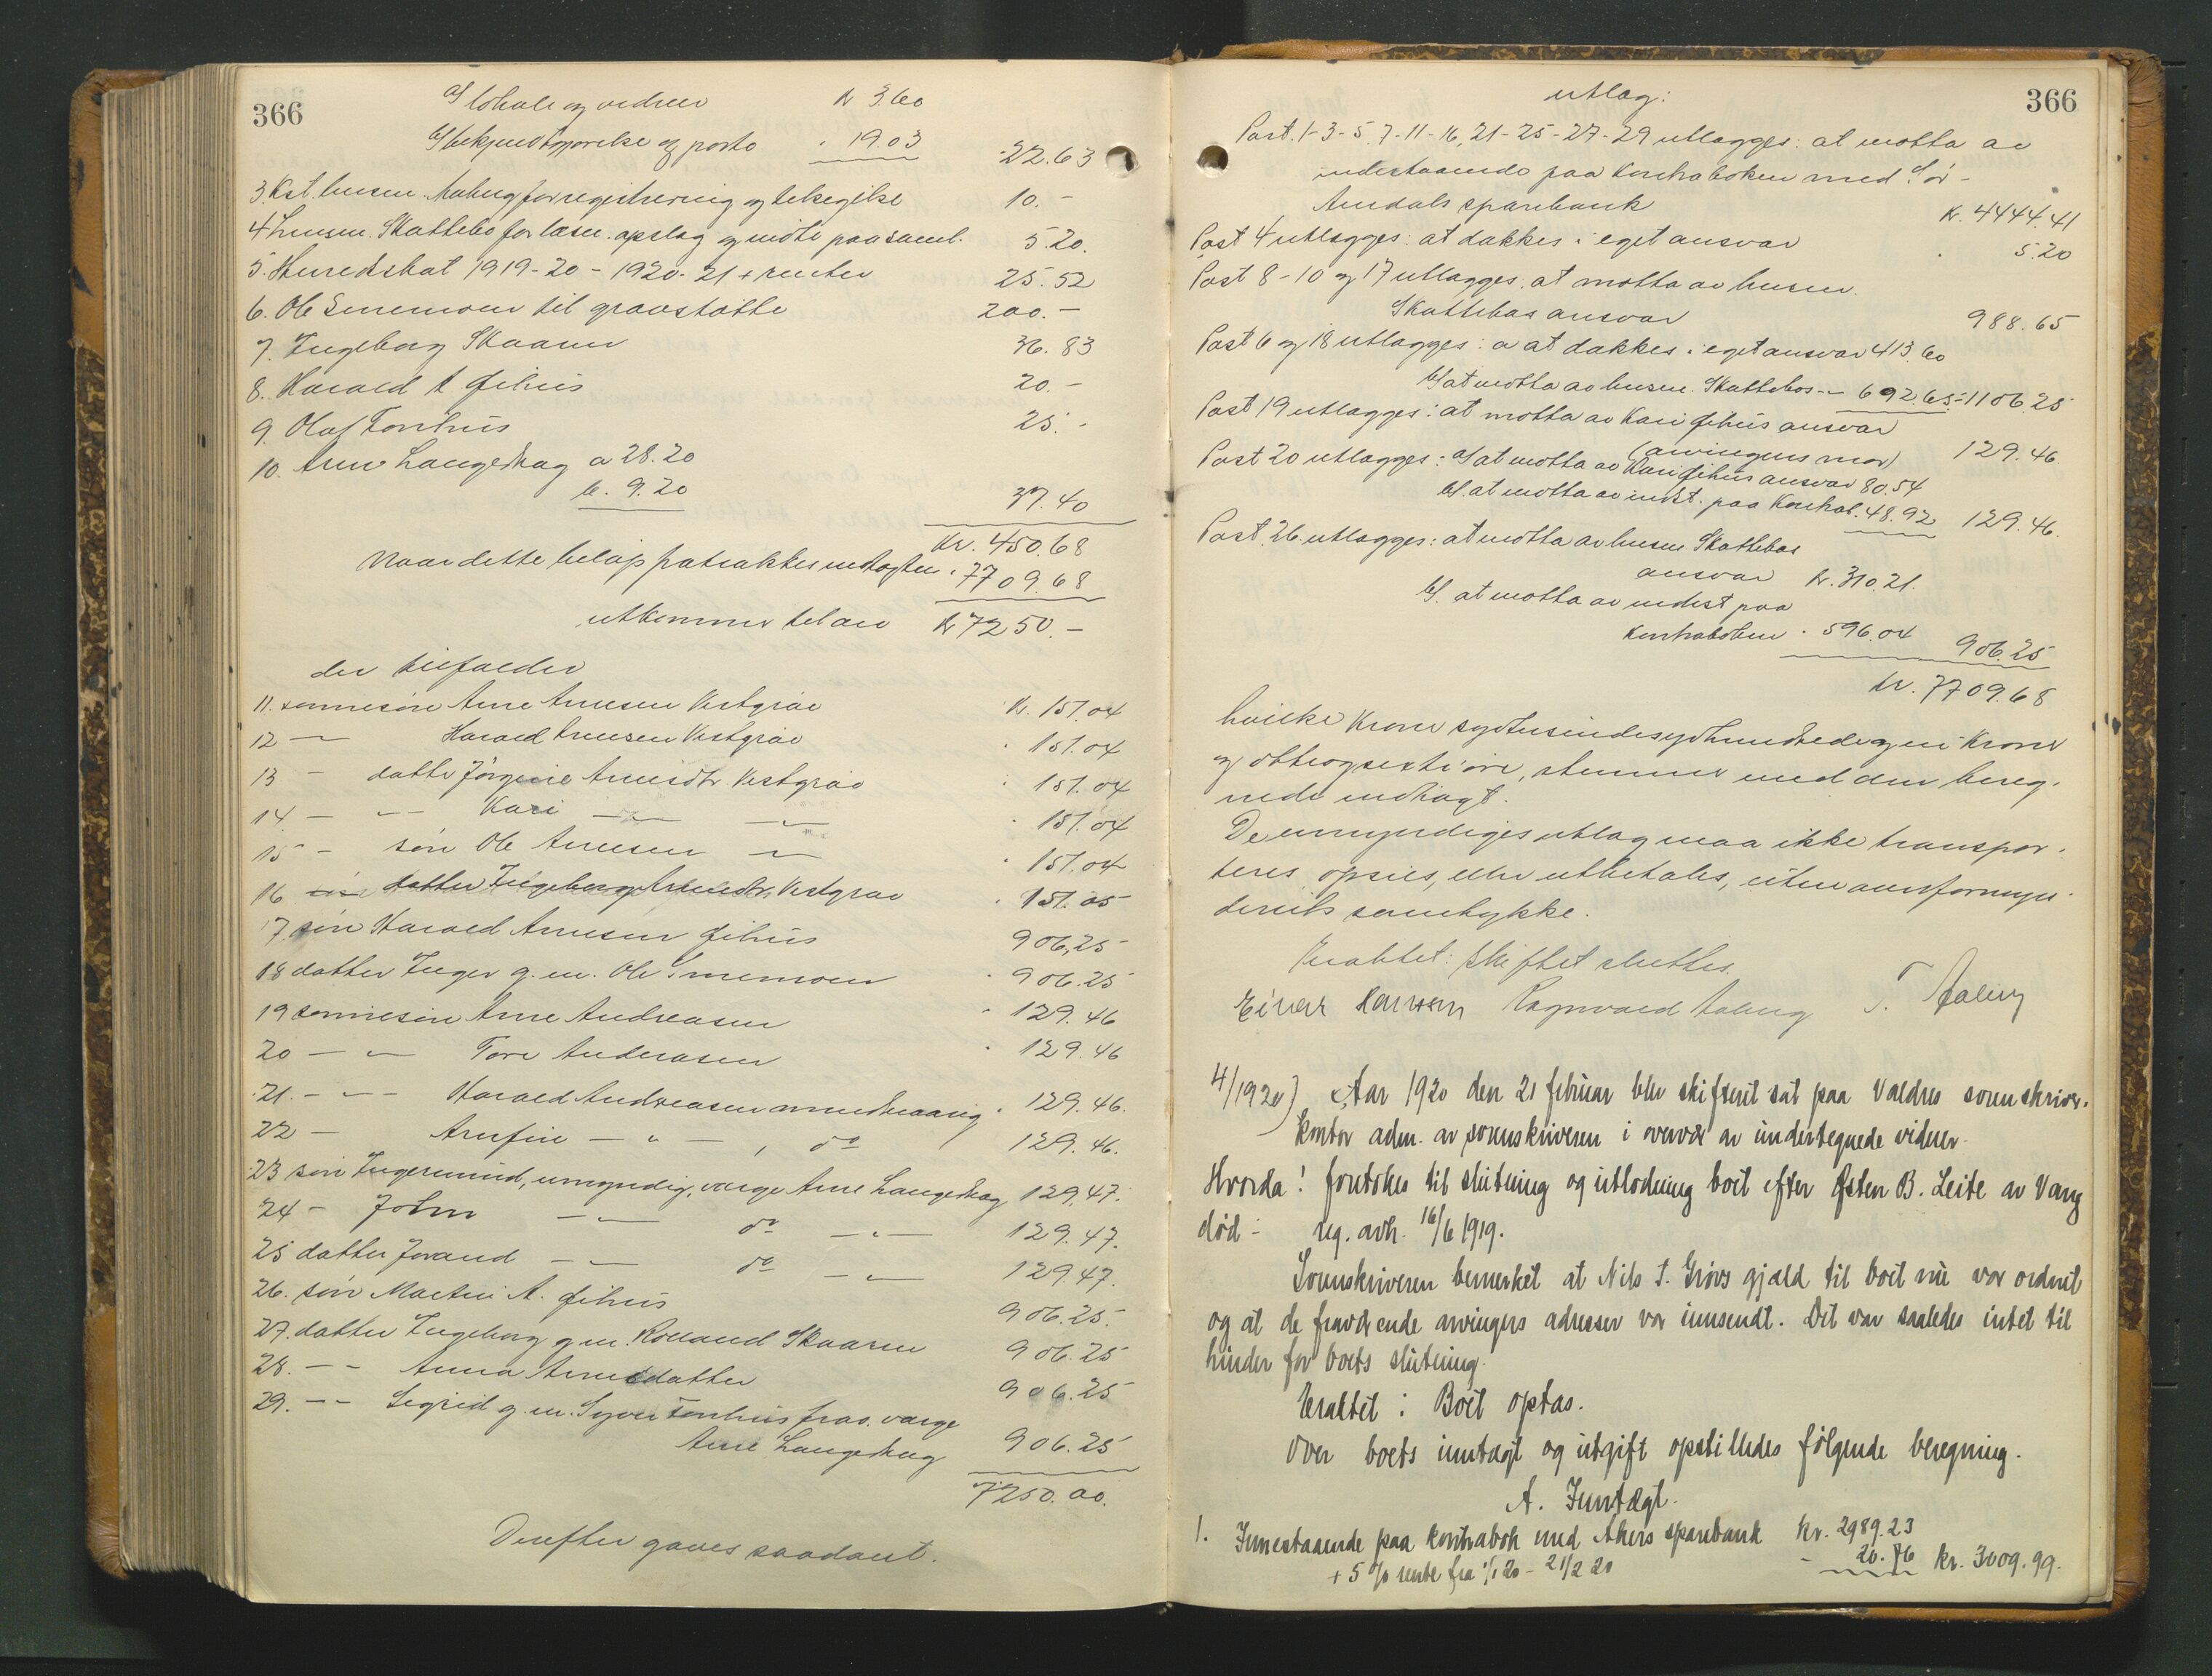 366
a/ lokale og vidner kr 3.60
b/ bekjendtgjørelse og porto " 19.03 22.63
3. Kst. lensm. Aaberg for registrering og tilsigelse 10.-
4 Lensm. Skattebo for læsn. opslag og møte paa saml. 5.20.
5. Herredskat 1919-20 - 1920-21 + renter 25.52
6. Ole Smemoen til gravstøtte 200.-
7. Ingeborg Skaaren 36.83
8. Harald A Jehus 20.-
9. Olaf Tonhus 25.-
10. Arne Langedrag a 28.20
b. 9.20 37.40
Kr. 450.68
Naar dette beløp fratrækkes indtægten " 7709.68
utkommer til arv kr 7250.-
der tilfalder
11. sønnesøn Arne Arnesen Vestgrav kr. 151.04
12 — Harald Arnesen Vestgrav " 151.04
13 - datter Jørgine Arnesdtr Vestgrav " 151.04
14 - " - Kari - " - - " - " 151.04
15 - søn Ole Arnesen - " - " 151.04
16 datter Ingeborg Arnesdtr. Vestgrav " 151.05
17 søn Harald Arnesen Jehus 906.25
18 datter Inger g.m. Ole Smemoen " 906.25
19 sønnesøn Arne Andreasen " 129.46
20 - " - Tore Andreasen " 129.46
21. - " - Harald Andreasen mindreaarig " 129.46.
22 - Arnfin - " - , do 129.46.
23 søn Ingermund, umyndig, værge Arne Langedrag 129.47.
24 - John - " - do - " - 129.47.
25 datter Jorand - " - do - " - 129.47.
26. søn Martin A. Jehus 906.25.
27. datter Ingeborg g.m. Rolland Skaaren 906.25
28. - - Anna Arnesdatter 906.25
29. - - Sigrid g.m. Syver Tonhus frav. værge
Arne Langedrag 906.25
7250.00.
Derefter gaves saadant.
366
utlæg:
Post. 1-3-5-7-11-16, 21-25-27-29 utlægges: at motta av
indestaaende paa Kontraboken med Sør-
Aurdals sparebank kr. 4444.41
Post 4 utlægges: at dækkes i eget ansvar " 5.20
Post 8-10 og 17 utlægges at motta av lensm.
Skattebos ansvar 988.65
Post 6 og 18 utlægges: a at dækkes i eget ansvar 413.60
b/ at motta av lensm. Skattebos - " 692.65 = 1106.25
Post 19 utlægges: at motta av Kari Jehus ansvar
(arvingens mor) 129.46.
Post 20 utlægges: a/ at motta av Kari Jehus ansvar 80.54
b/. at motta av indst. paa Kontrab. 48.92 129.46.
Post. 26 utlægges: at motta av lensm Skattebos
ansvar kr. 310.21.
b/. at motta av indest paa
kontraboken " 596.04 906.25
kr. 7709.68
hvilke Kroner syvtusindesyvhundrede og ni Kroner
og ottiogsextiøre, stemmer med den bereg-
nede indtægt.
De umyndiges utlæg maa ikke transpor-
teres, opsies, eller utbetales, uten overformyn-
deriets samtykke.
Eragtet: Skiftet sluttes.
Einar Hansen Ragnvald Aaberg T. Aaberg
4/1920) Aar 1920 den 21 februar blev skifteret sat paa Valdres sorenskriver-
kontor adm. av sorenskriveren i overvær av undertegnede vidner.
Hvorda! foretokes til slutning og utlodning boet efter Østen B. Leite av Vang
død - reg. avh. 16/6 1919.
Sorenskriveren bemerket at Nils T. Grøvs gjæld til boet nu var ordnet
og at de fraværende arvingers adresser var innsendt. Det var saaledes intet til
hinder for boets slutning.
Eraktet: Boet optas.
Over boets inntægt og utgift opstilledes følgende beregning.
A. Inntægt.
1. Innestaaende paa kontrabok med Akers sparebank kr. 2989.23
+ 5 % rente fra 1/1 20 - 21/2 20 - 20.76 kr. 3009.99.